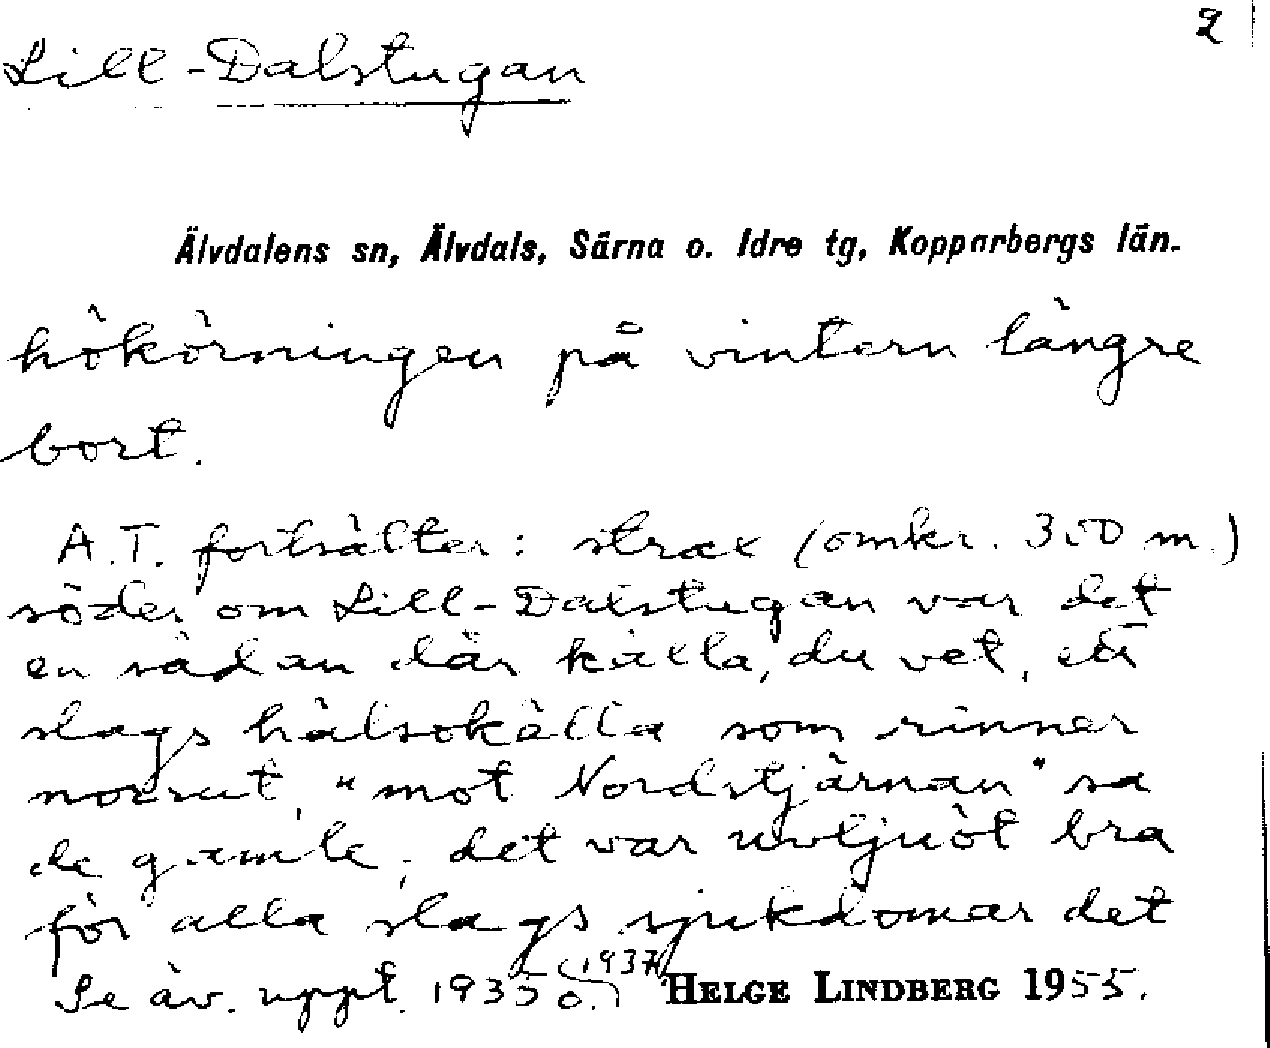 2
Lill-Dalstugan
Älvdalens sn, Älvdals, Särna o. Idre tg, Kopparbergs län.
hökörningen på vintern längre
bort.
A.T. fortsätter: strax (omkr. 300 m.)
söder om Lill-Dalstugan var det
en sådan där källa, du vet, ett
slags hälsokälla som rinner
norrut, "mot Nordstjärnan" sa
de gamle, det var bra
för alla slags sjukdomar det
Se äv. uppt. 1935 o. 1937 HELGE LINDBERG 1955.